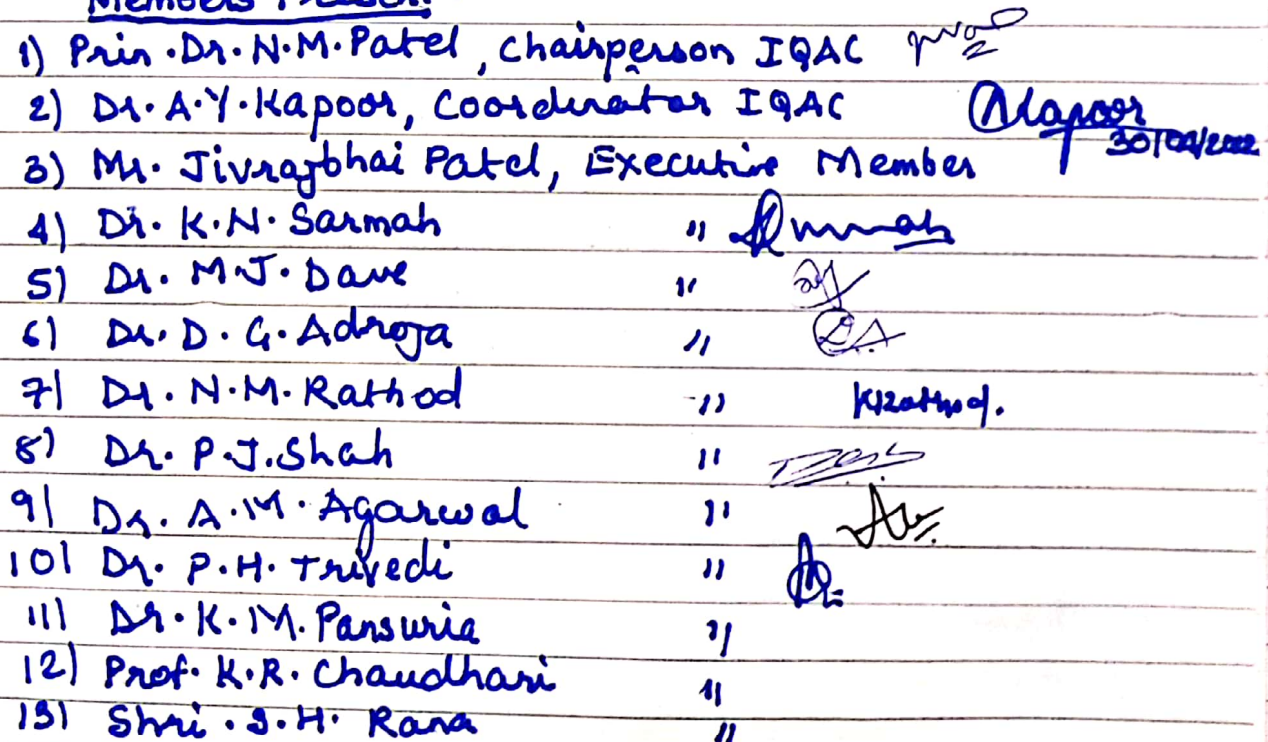 Members Present
1) Prin. Dr. N. M. Patel, Chairperson IQAC
2) Dr. A. Y. Kapoor, Coordinator IQAC Kapoor
3) Mr. Jivrajbhai Patel, Executive Member
4) Dr. K. N. Sarmah "
5) Dr. M. J. Dave "
6) Dr. D. G. Adroja " D.A.
7) Dr. N. M. Rathod " KRathod.
8) Dr. P. J. Shah "
9) Dr. A. M. Agarwal "
10) Dr. P. H. Trivedi "
11) Dr. K. M. Pansuria "
12) Prof. K. R. Chaudhari "
13) Shri. S. H. Rana "